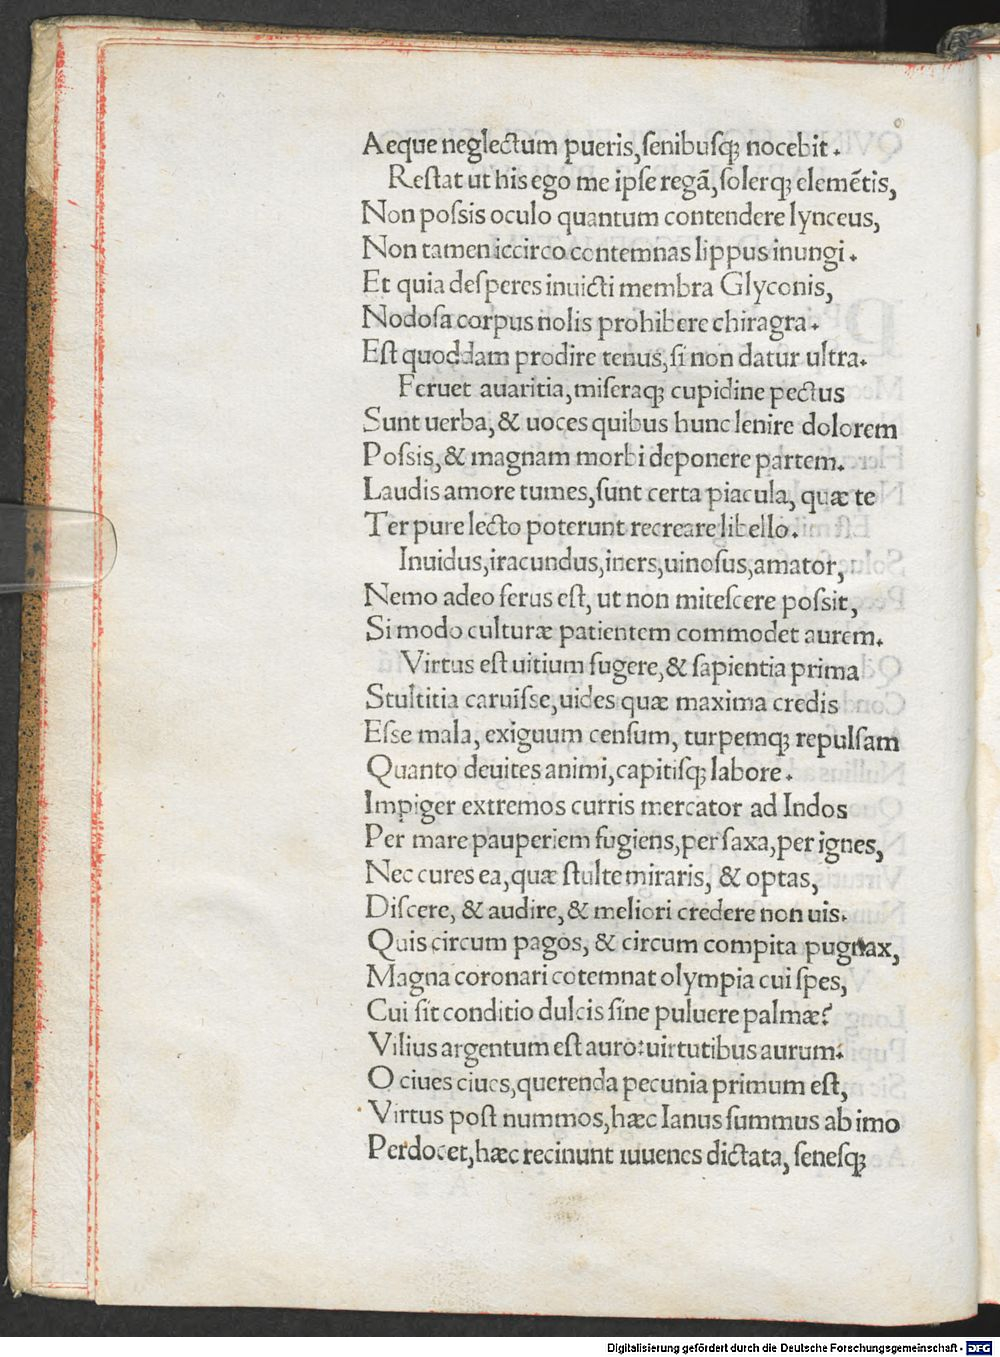 Aeque neglectum pueris, senibusq; nocebit.
Restat ut his ego me ipse regā, solerq; elemētis,
Non possis oculo quantum contendere lynceus,
Non tamen iccirco contemnas lippus inungi.
Et quia desperes inuicti membra Glyconis,
Nodosa corpus nolis prohibere chiragra.
Est quoddam prodire tenus, si non datur ultra.
Feruet auaritia, miseraq; cupidine pectus
Sunt uerba, & uoces quibus hunc lenire dolorem
Possis, & magnam morbi deponere partem.
Laudis amore tumes, sunt certa piacula, quæ te
Ter pure lecto poterunt recreare libello.
Inuidus, iracundus, iners, uinosus, amator,
Nemo adeo ferus est, ut non mitescere possit,
Si modo culturæ patientem commodet aurem.
Virtus est uitium fugere, & sapientia prima
Stultitia caruisse, uides quæ maxima credis
Esse mala, exiguum censum, turpemq; repulsam
Quanto deuites animi, capitisq; labore.
Impiger extremos curris mercator ad Indos
Per mare pauperiem fugiens, per saxa, per ignes,
Nec cures ea, quæ stulte miraris, & optas,
Discere, & audire, & meliori credere non uis.
Quis circum pagos, & circum compita pugnax,
Magna coronari cotemnat olympia cui spes,
Cui sit conditio dulcis sine puluere palmæ?
Vilius argentum est auro: uirtutibus aurum:
O ciues ciues, querenda pecunia primum est,
Virtus post nummos, hæc Ianus summus ab imo
Perdocet, hæc recinunt iuuenes dictata, senesq;
Digitalisierung gefördert durch die Deutsche Forschungsgemeinschaft - DFG